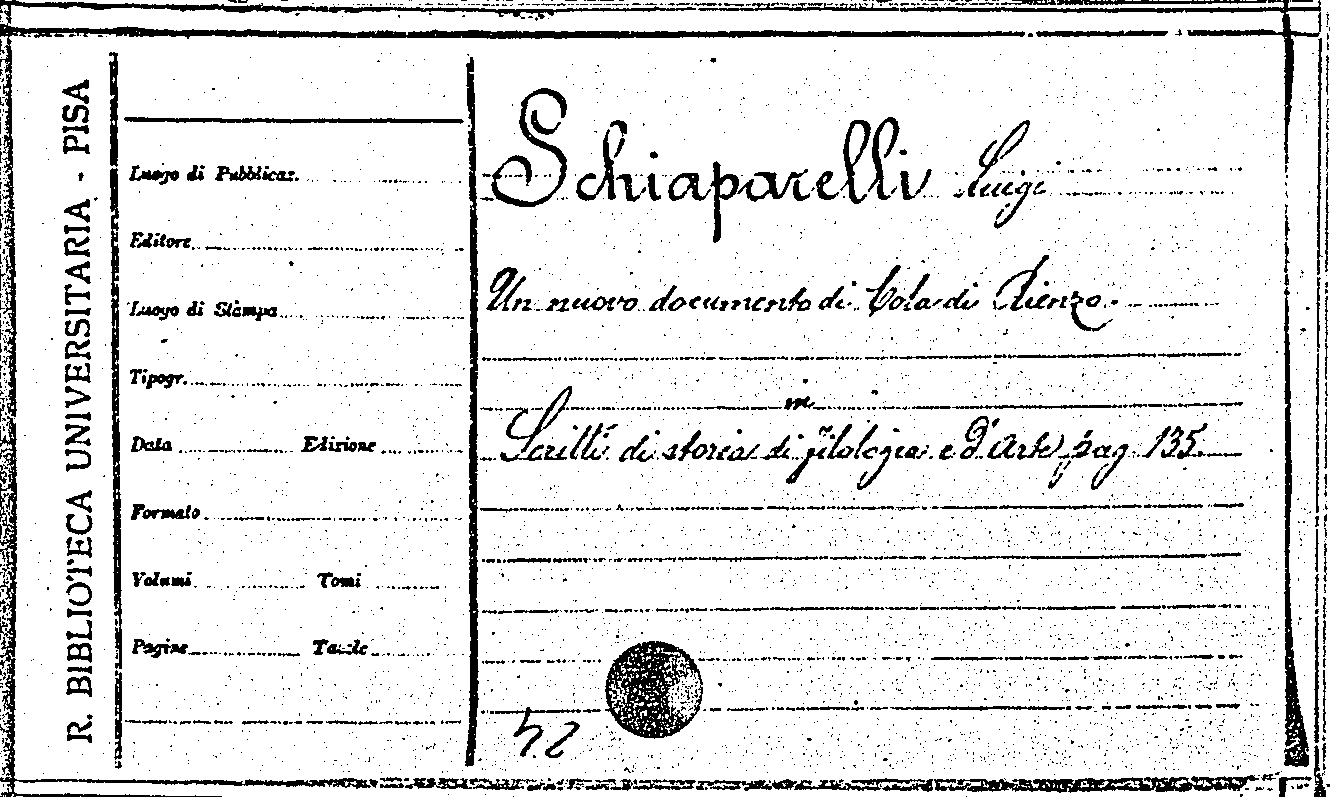 R. BIBLIOTECA UNIVERSITARIA - PISA
Luogo di Pubblicaz.
Editore
Luogo di Stampa
Tipogr.
Data Edizione
Formato
Volumi Tomi
Pagine Tavole
Schiaparelli Luigi
Un nuovo documento di Cola di Rienzo.
in
Scritti di storia di filologia e d'Arte pag 135.